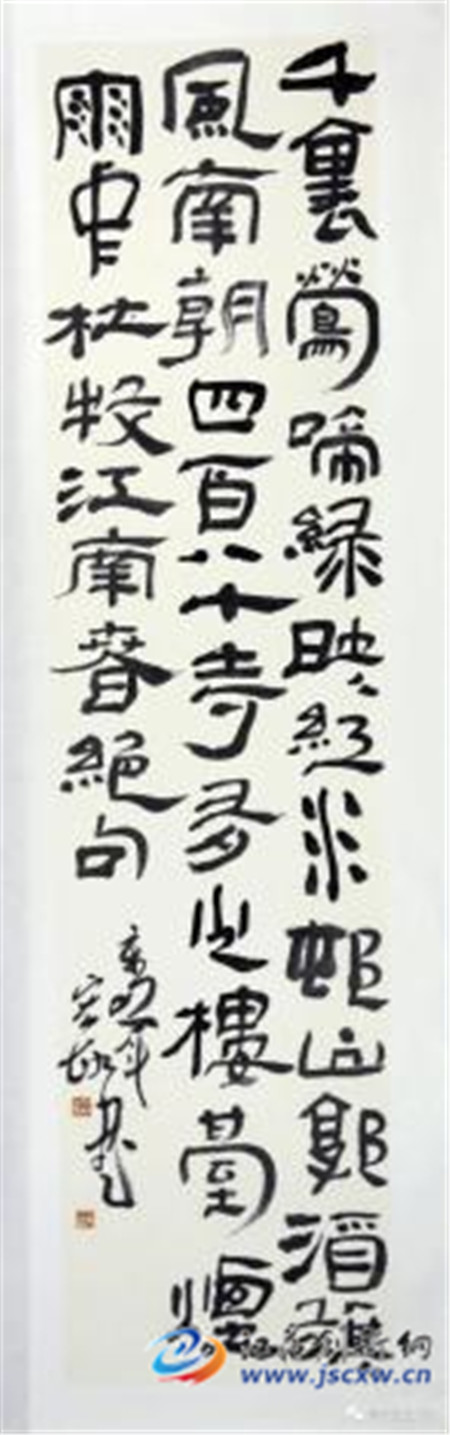 千裏鶯啼緑映紅水邨山郭酒旗
風南朝四百八十寺多少樓臺煙
雨中杜牧江南春絕句
www.jscxw.cn